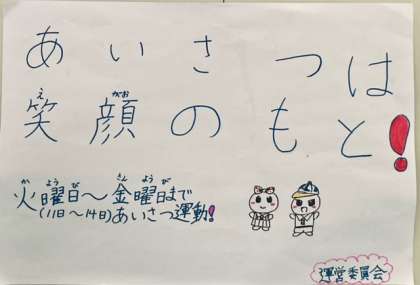 あいさつは
笑顔のもと!
火曜日〜金曜日まで
(11日〜14日)あいさつ運動!
運営委員会